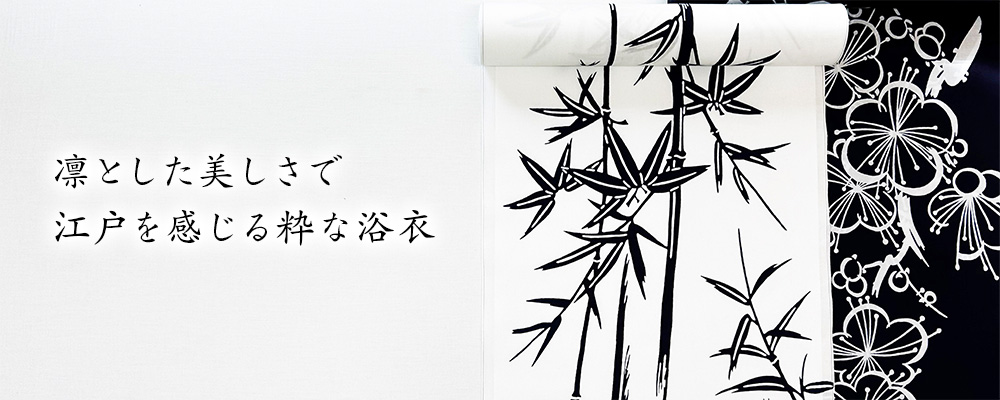 凛とした美しさで
江戸を感じる粋な浴衣